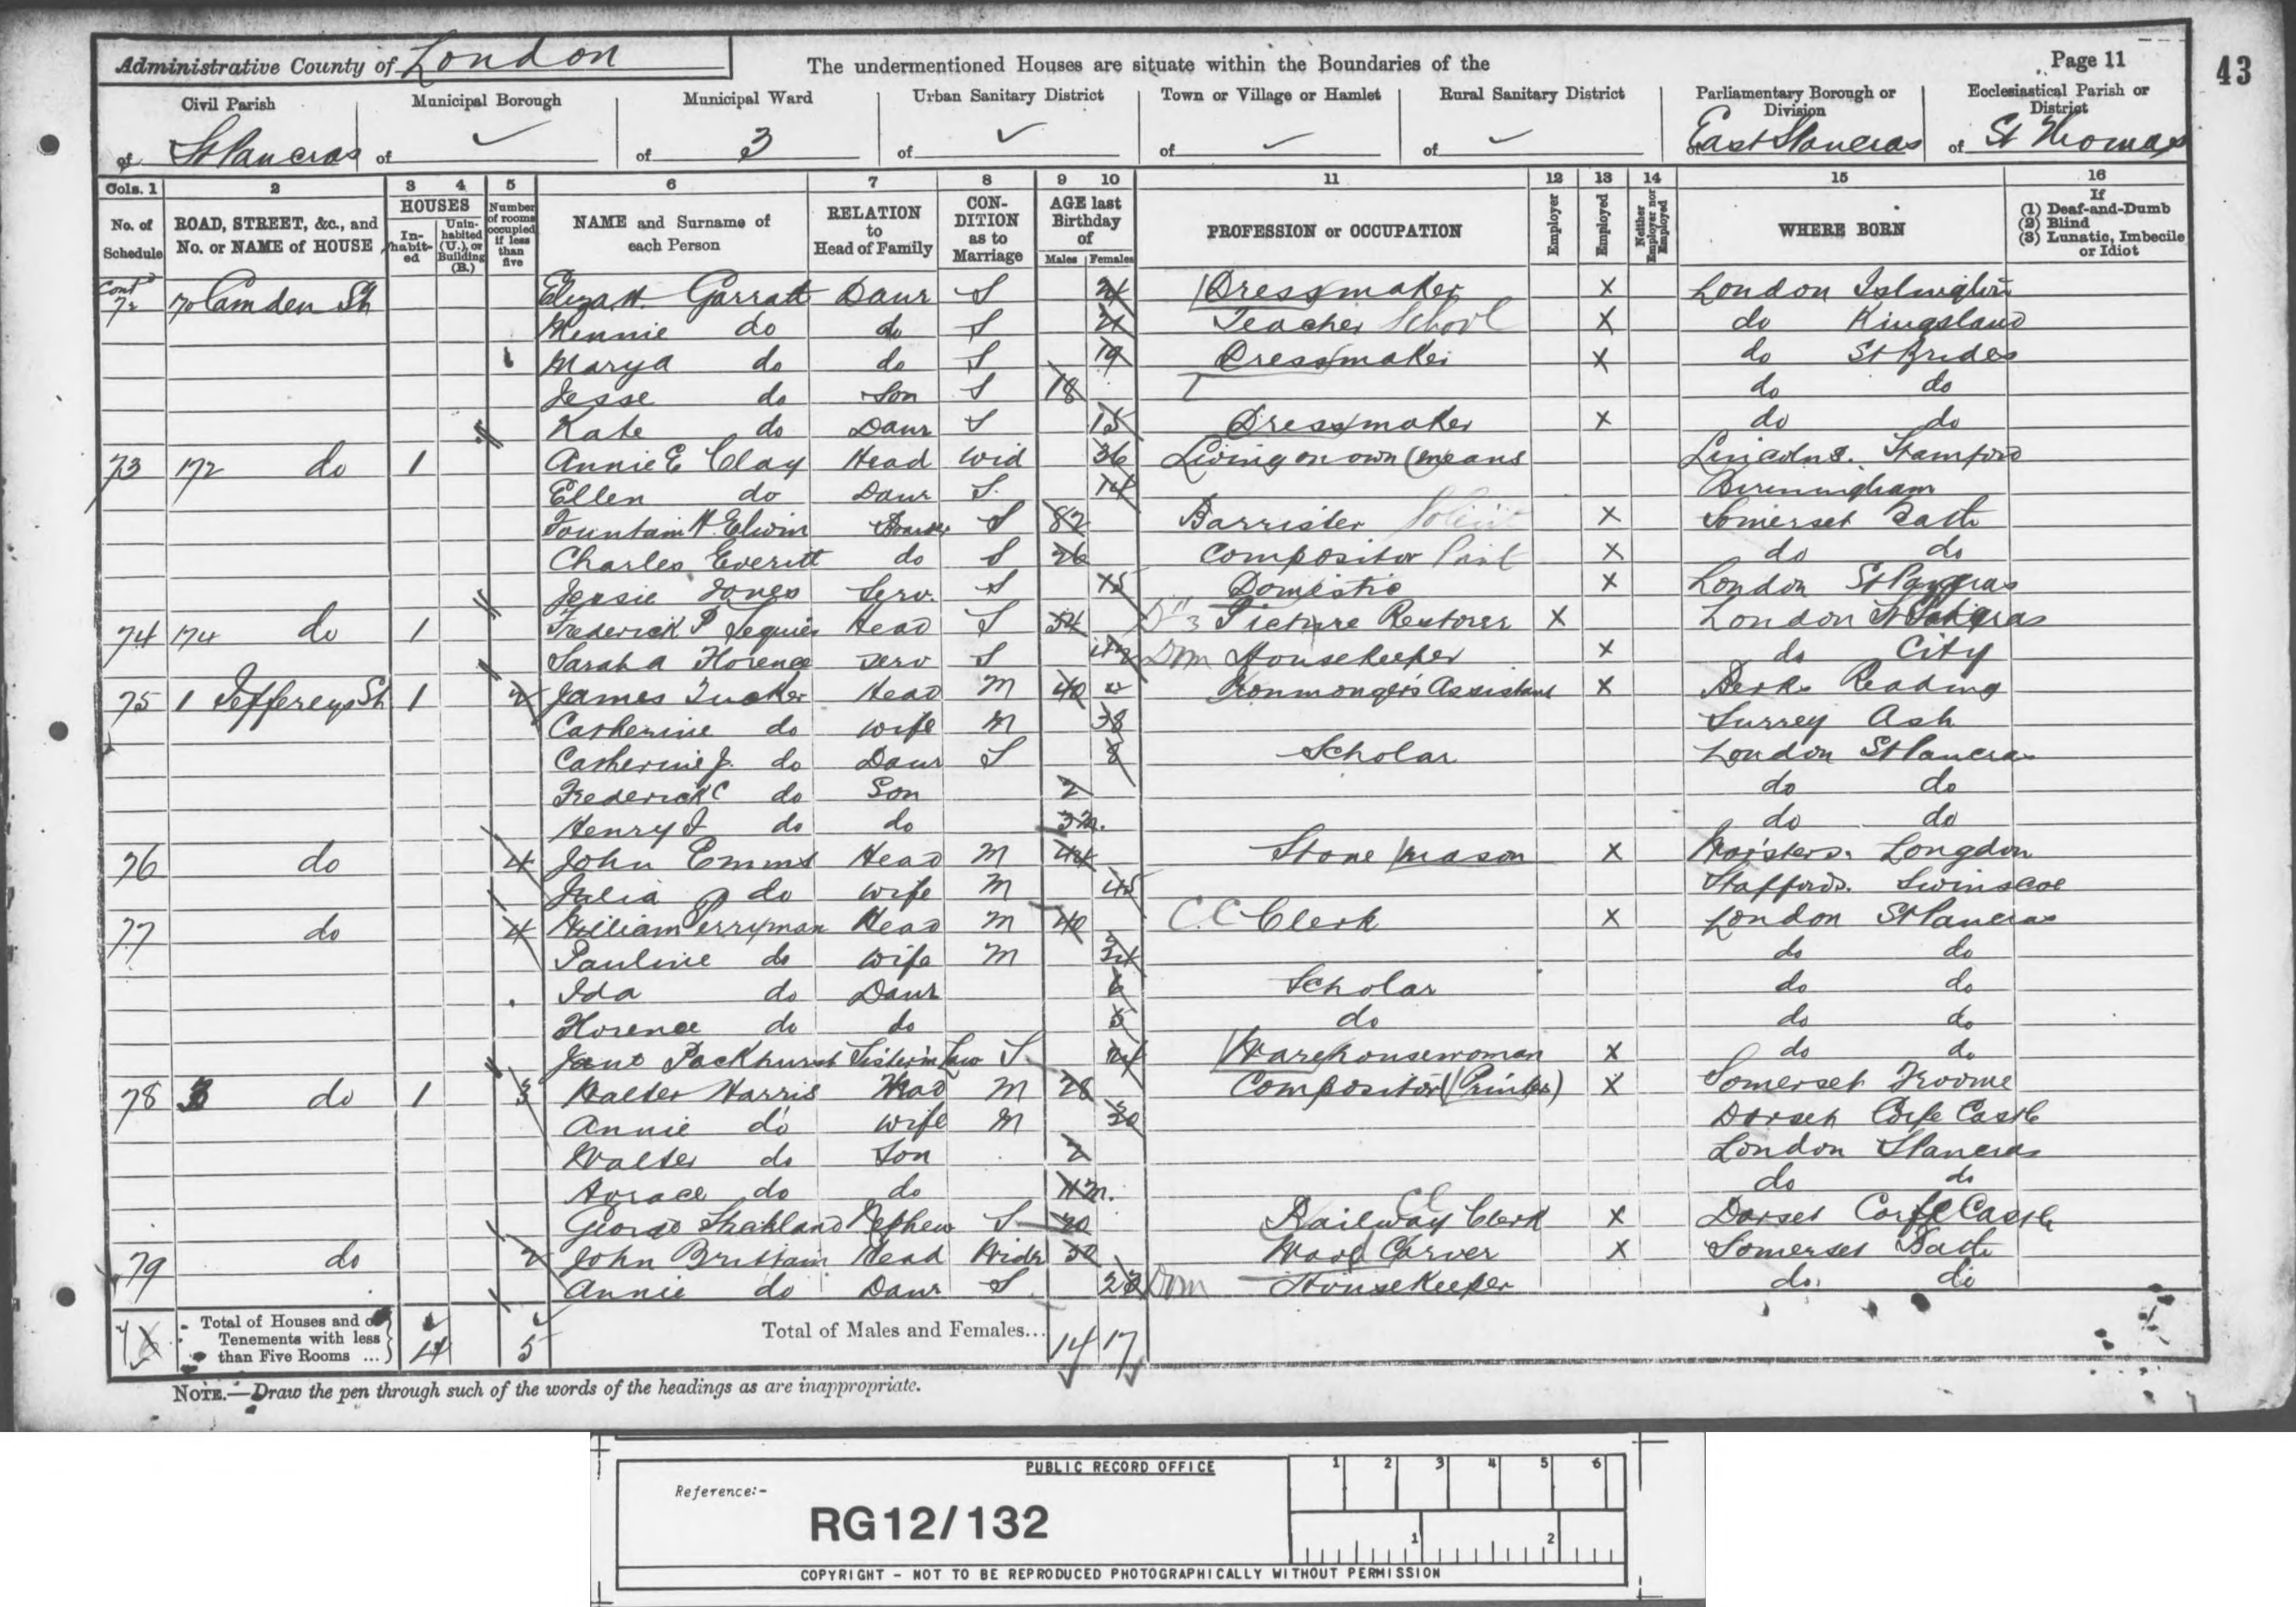 Administrative County of London
The undermentioned Houses are situate within the Boundaries of the
Page 11
43
Civil Parish of St Pancras
Municipal Borough of ✓
Municipal Ward of 3
Urban Sanitary District of ✓
Town or Village or Hamlet of ✓
Rural Sanitary District of ✓
Parliamentary Borough or Division of East St Pancras
Ecclesiastical Parish or District of St Thomas
Cols. 1 2 3 4 5 6 7 8 9 10 11 12 13 14 15 16
No. of Schedule
ROAD, STREET, &c., and No. or NAME of HOUSE
HOUSES
In-habit-ed
Unin-habited (U.), or Building (B.)
Number of rooms occupied if less than five
NAME and Surname of each Person
RELATION to Head of Family
CON-DITION as to Marriage
AGE last Birthday of
Males Females
PROFESSION or OCCUPATION
Employer
Employed
Neither Employer nor Employed
WHERE BORN
If (1) Deaf-and-Dumb (2) Blind (3) Lunatic, Imbecile or Idiot
Contd 72 170 Camden St Eliza H. Garratt Daur S Dressmaker X London Islington
Minnie do do S 21 Teacher School X do Kingsland
Mary A do do S 19 Dressmaker X do St Brides
Jesse do Son S 18 do do
Kate do Daur S 15 Dressmaker X do do
73 172 do 1 Annie E Clay Head Wid 36 Living on own means Lincolns. Stamford
Ellen do Daur S. 14 Birmingham
Fountain H. Elwin S 82 Barrister X Somerset Bath
Charles Everitt do S 26 Compositor X do do
Jessie Jones Serv. S 15 Domestic X London St Pancras
74 174 do 1 Frederick P Seguier Head S 54 Picture Restorer X London St Pancras
Sarah A Florence Serv S Dom Housekeeper X do City
75 1 Jefferys St 1 2 James Tucker Head M 40 Ironmonger's Assistant X Berks Reading
Catherine do Wife M 38 Surrey Ash
Catherine J. do Daur S 8 Scholar London St Pancras
Frederick C do Son 2 do do
Henry J do do 3m. do do
76 do 4 John Emms Head M 44 Stone Mason X Worsters. Longdon
Julia do Wife M 45 Staffords. Swinscoe
77 do 4 William Perryman Head M 40 C.C. Clerk X London St Pancras
Pauline do Wife M 34 do do
Ida do Daur 6 Scholar do do
Florence do do 5 do do do
Jane Packhurst Sister in Law S. 24 Warehousewoman X do do
78 3 do 1 3 Walter Harris Head M 28 Compositor (Printer) X Somerset Froome
Annie do Wife M 30 Dorset Corfe Castle
Walter do Son 2 London St Pancras
Horace do do 11m. do do
George Nephew S 20 Railway Clerk X Dorset Corfe Castle
79 do 2 John Brittain Head Widr Wood Carver X Somerset Bath
Annie do Daur S 23 Dom Housekeeper do. do
Total of Houses and of Tenements with less than Five Rooms ... 4 5
Total of Males and Females... 14 17
NOTE.—Draw the pen through such of the words of the headings as are inappropriate.
PUBLIC RECORD OFFICE
1 2 3 4 5 6
Reference:-
RG12/132
1 2
COPYRIGHT - NOT TO BE REPRODUCED PHOTOGRAPHICALLY WITHOUT PERMISSION